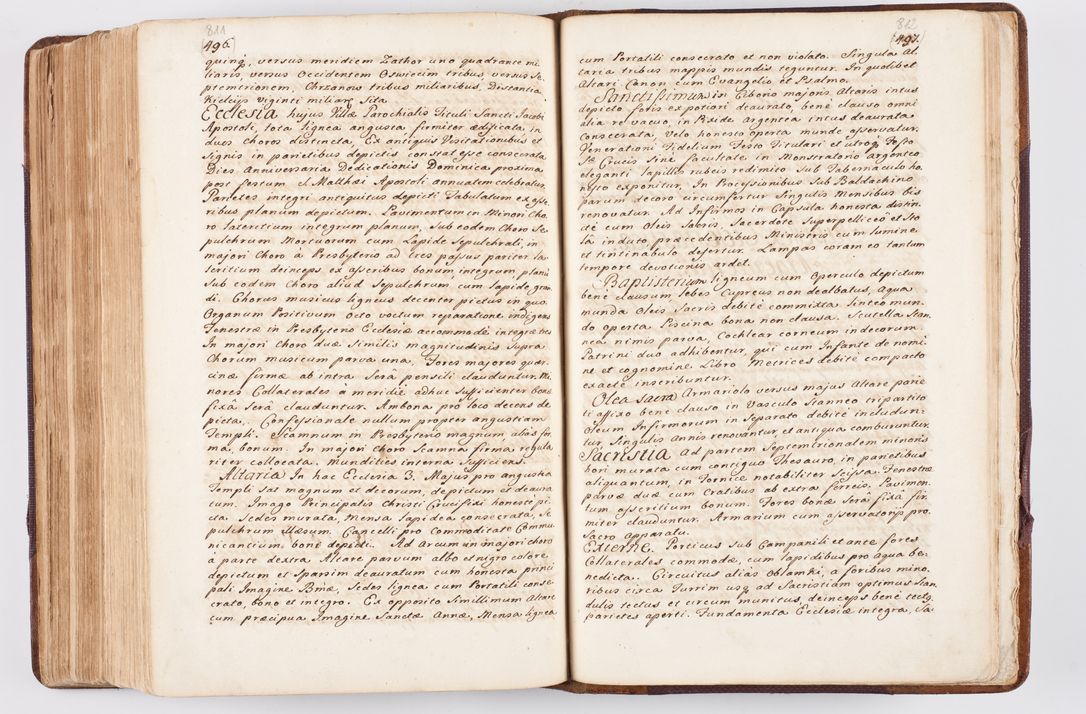 811
496.
quinq, versus meridiem Zathor uno quadrante mi-
liaris, versus Occidentem Oswiecim tribus, versus Se-
ptemtrionem, Chrzanow tribus miliaribus, Distantia
Kielcijs viginti miliarq Sita.
Ecclesia hujus Villæ Parochialis Tituli Sancti Jacobi
Apostoli, tota lignea angusta, firmiter ædificata, in
duos Choros distincta, Ex antiquis Visitationibus et
Signis in parietibus depictis constat esse consecrata
Dies Anniversaria Dedicationis Dominica proxima
post festum S. Matthæi Apostoli annuatem celebratur.
Parietes integri antiquitus depicti Tabulatum ex asse-
ribus planum depictum. Pavimentum in Minori Cho-
ro lateritium integrum planum, sub eodem Choro Se-
pulchrum Mortuorum cum Lapide Sepulchrali, in
majori Choro à Presbyterio ad tres passus pariter la-
teritium deinceps ex asseribus bonum integrum, planū
sub eodem Choro aliud Sepulchrum cum lapide gran-
di. Chorus musicus ligneus decenter pictus in quo
Organum Positivum octo vocum reparatione indigens
Fenestræ in Presbyterio Ecclesiæ accommodè integræ tres
In majori choro duæ similis magnitudinis supra
Chorum musicum parva una. Fores majores quer-
cinæ firmæ ab intra Serâ pensili clauduntur, Mi-
nores Collaterales à meridie adhuc sufficienter bonæ
fixâ Serâ clauduntur. Ambona pro loco decens de-
picta. Confessionale nullum propter angustiam
Templi. Scamnum in Presbyterio magnum alias for-
ma, bonum. In majori Choro Scamna firma regula-
riter collocata. Mundities interna sufficiens.
Altaria In hac Ecclesia 3. Majus pro angustia
Templi sat magnum et decorum, depictum et deaura-
tum. Imago Principalis Christi Crucifixi honeste pi-
cta. Sedes murata, Mensa lapidea consecrata, Se-
pulchrum illæsum. Cancelli pro Commoditate Commu-
nicantium, bonè depicti. Ad Arcum in majori choro
à parte dextra Altare parvum albo et nigro colore
depictum et sparsim deauratum cum honesta princi-
pali Imagine Bmæ, Sedes lignea cum Portatili conse-
crato, bono et integro. Ex opposito simillimum Altare
cum præcipua Imagine Sanctæ Annæ, Mensa lignea
812
497.
cum Portatili consecrato et non violato. Singula Al-
taria tribus mappis mundis teguntur. In quolibet
Altari Canon cum Evangelio et Psalmo.
Sanctissimum in Ciborio majoris Altaris intus
depicto foris ex potiori deaurato, benè clauso omni
alia re vacuo, in Pixide Argentea intus deaurata
Consecrata, Velo honesto operta munde asservatur,
Venerationi Fidelium Festo Titulari et utroq Festo
Sæ Crucis sine facultate in Monstratorio argenteo
eleganti lapillis rubeis redimito sub Tabernaculo ho-
nesto exponitur, In Processionibus sub Baldachino
parum decoro circumfertur Singulis Mensibus bis
renovatur. Ad Infirmos in Capsula honesta distin-
ctè cum Oleis Sacris, Sacerdote Superpelliceo et Sto-
lâ induto, præcedentibus Ministris cum lumine
et tintinabulo defertur. Lampas coram eo tantum
tempore devotionis ardet.
Baptisterium ligneum cum Operculo depictum
bene clausum lebes Cupreus non dealbatus, Aqua
munda Oleis Sacris debitè commixta linteo mun-
do operta Piscina bona non clausa. Scutella Stan-
nea nimis parva, Cochlear corneum indecorum.
Patrini duo adhibentur, qui cum Infante de nomi-
ne et cognomine Libro Metrices debitè compacto
exactè inscribuntur.
Olea sacra Armariolo versus majus Altare parie-
ti affixo benè clauso in Vasculo Stanneo tripartito
Oleum Infirmorum in Separato debitè includun-
tur, Singulis Annis renovantur, et antiqua comburuntur.
Sacristia Ad partem Septemtrionalem minoris
hori murata cum contiguo Thesauro, in parietibus
aliquantum, in Fornice notabiliter scissa. Fenestræ
parvæ duæ cum Cratibus ab extra ferreis. Pavimen-
tum asseritium bonum. Fores bonæ Serâ fixâ fir-
miter clauduntur. Armarium cum asservatorijs pro
Sacro apparatu.
Externe. Porticus sub Campanili et ante fores
Collaterales commodæ, cum lapidibus pro Aqua be-
nedicta. Circuitus alias Oblamki, à foribus mino-
ribus circa Turrim usq ad Sacristiam optimus Scan-
dulis tectus et circum munitus, deinceps benè tectq
parietes aperti. Fundamenta Ecclesiæ integra, Sa-